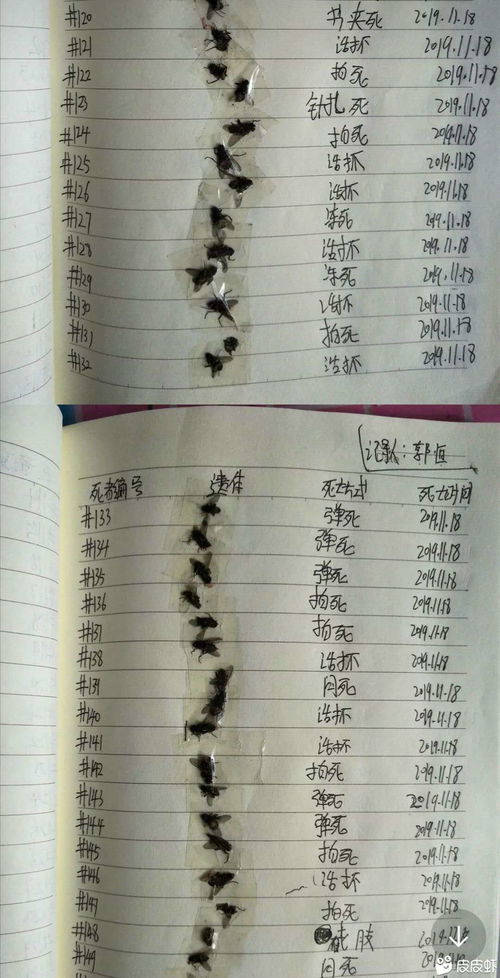 #120 书夹死 2019.11.18
#121 活抓 2019.11.18
#122 拍死 2019.11.18
#123 针扎死 2019.11.18
#124 拍死 2019.11.18
#125 活抓 2019.11.18
#126 活抓 2019.11.18
#127 冻死 2019.11.18
#128 活抓 2019.11.18
#129 冻死 2019.11.18
#130 活抓 2019.11.18
#131 拍死 2019.11.18
#132 活抓 2019.11.18
记录人:郭恒
死者编号 遗体 死亡方式 死亡时间
#133 弹死 2019.11.18
#134 弹死 2019.11.18
#135 弹死 2019.11.18
#136 拍死 2019.11.18
#137 拍死 2019.11.18
#138 活抓 2019.11.18
#139 闷死 2019.11.18
#140 活抓 2019.11.18
#141 活抓 2019.11.18
#142 拍死 2019.11.18
#143 弹死 2019.11.18
#144 弹死 2019.11.18
#145 拍死 2019.11.18
#146 活抓 2019.11.18
#147 拍死 2019.11.18
#148 2019.11.18
#149 闷死 2019.11.18
皮皮虾